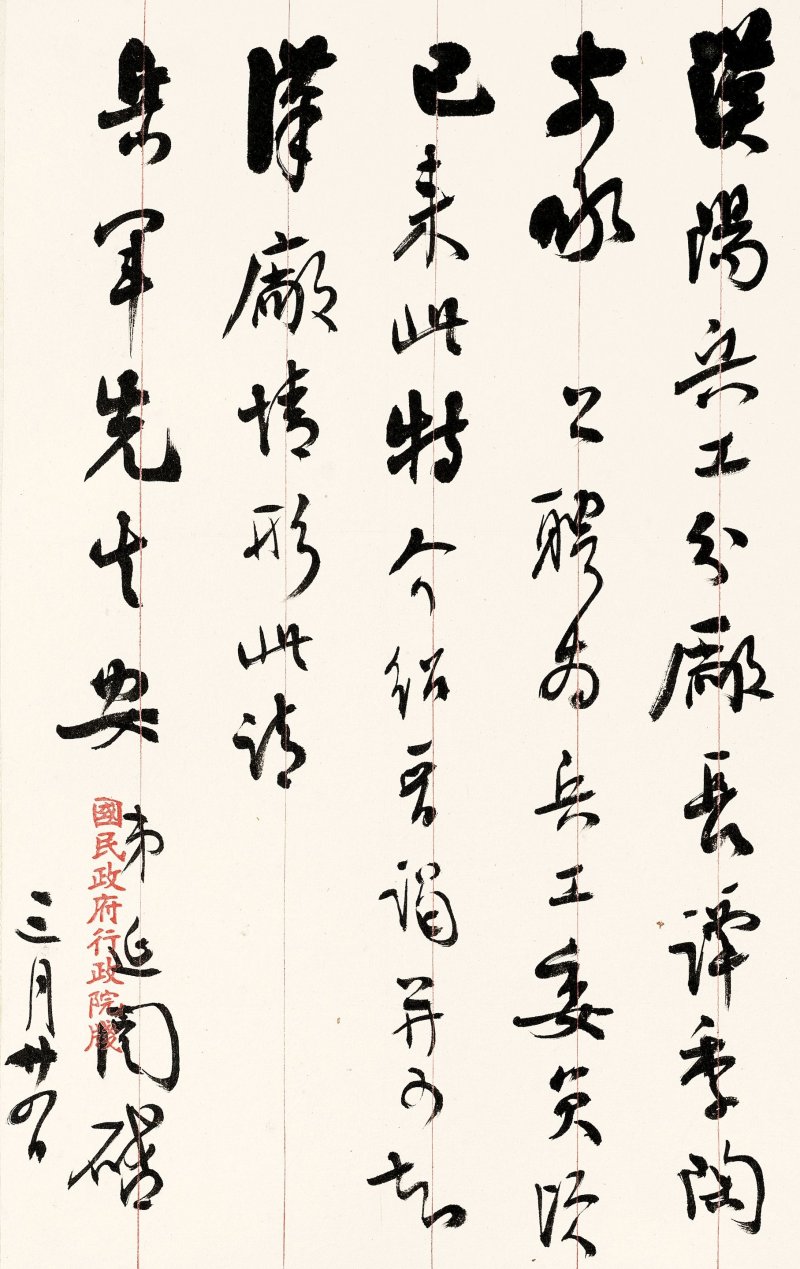 漢陽兵工分廠長譚季陶
前承 公聘為兵工委員頃
已來此特介紹晉謁并可知
漢廠情形此請
岳軍先生 安
弟延闓啟
三月廿四日
國民政府行政院牋